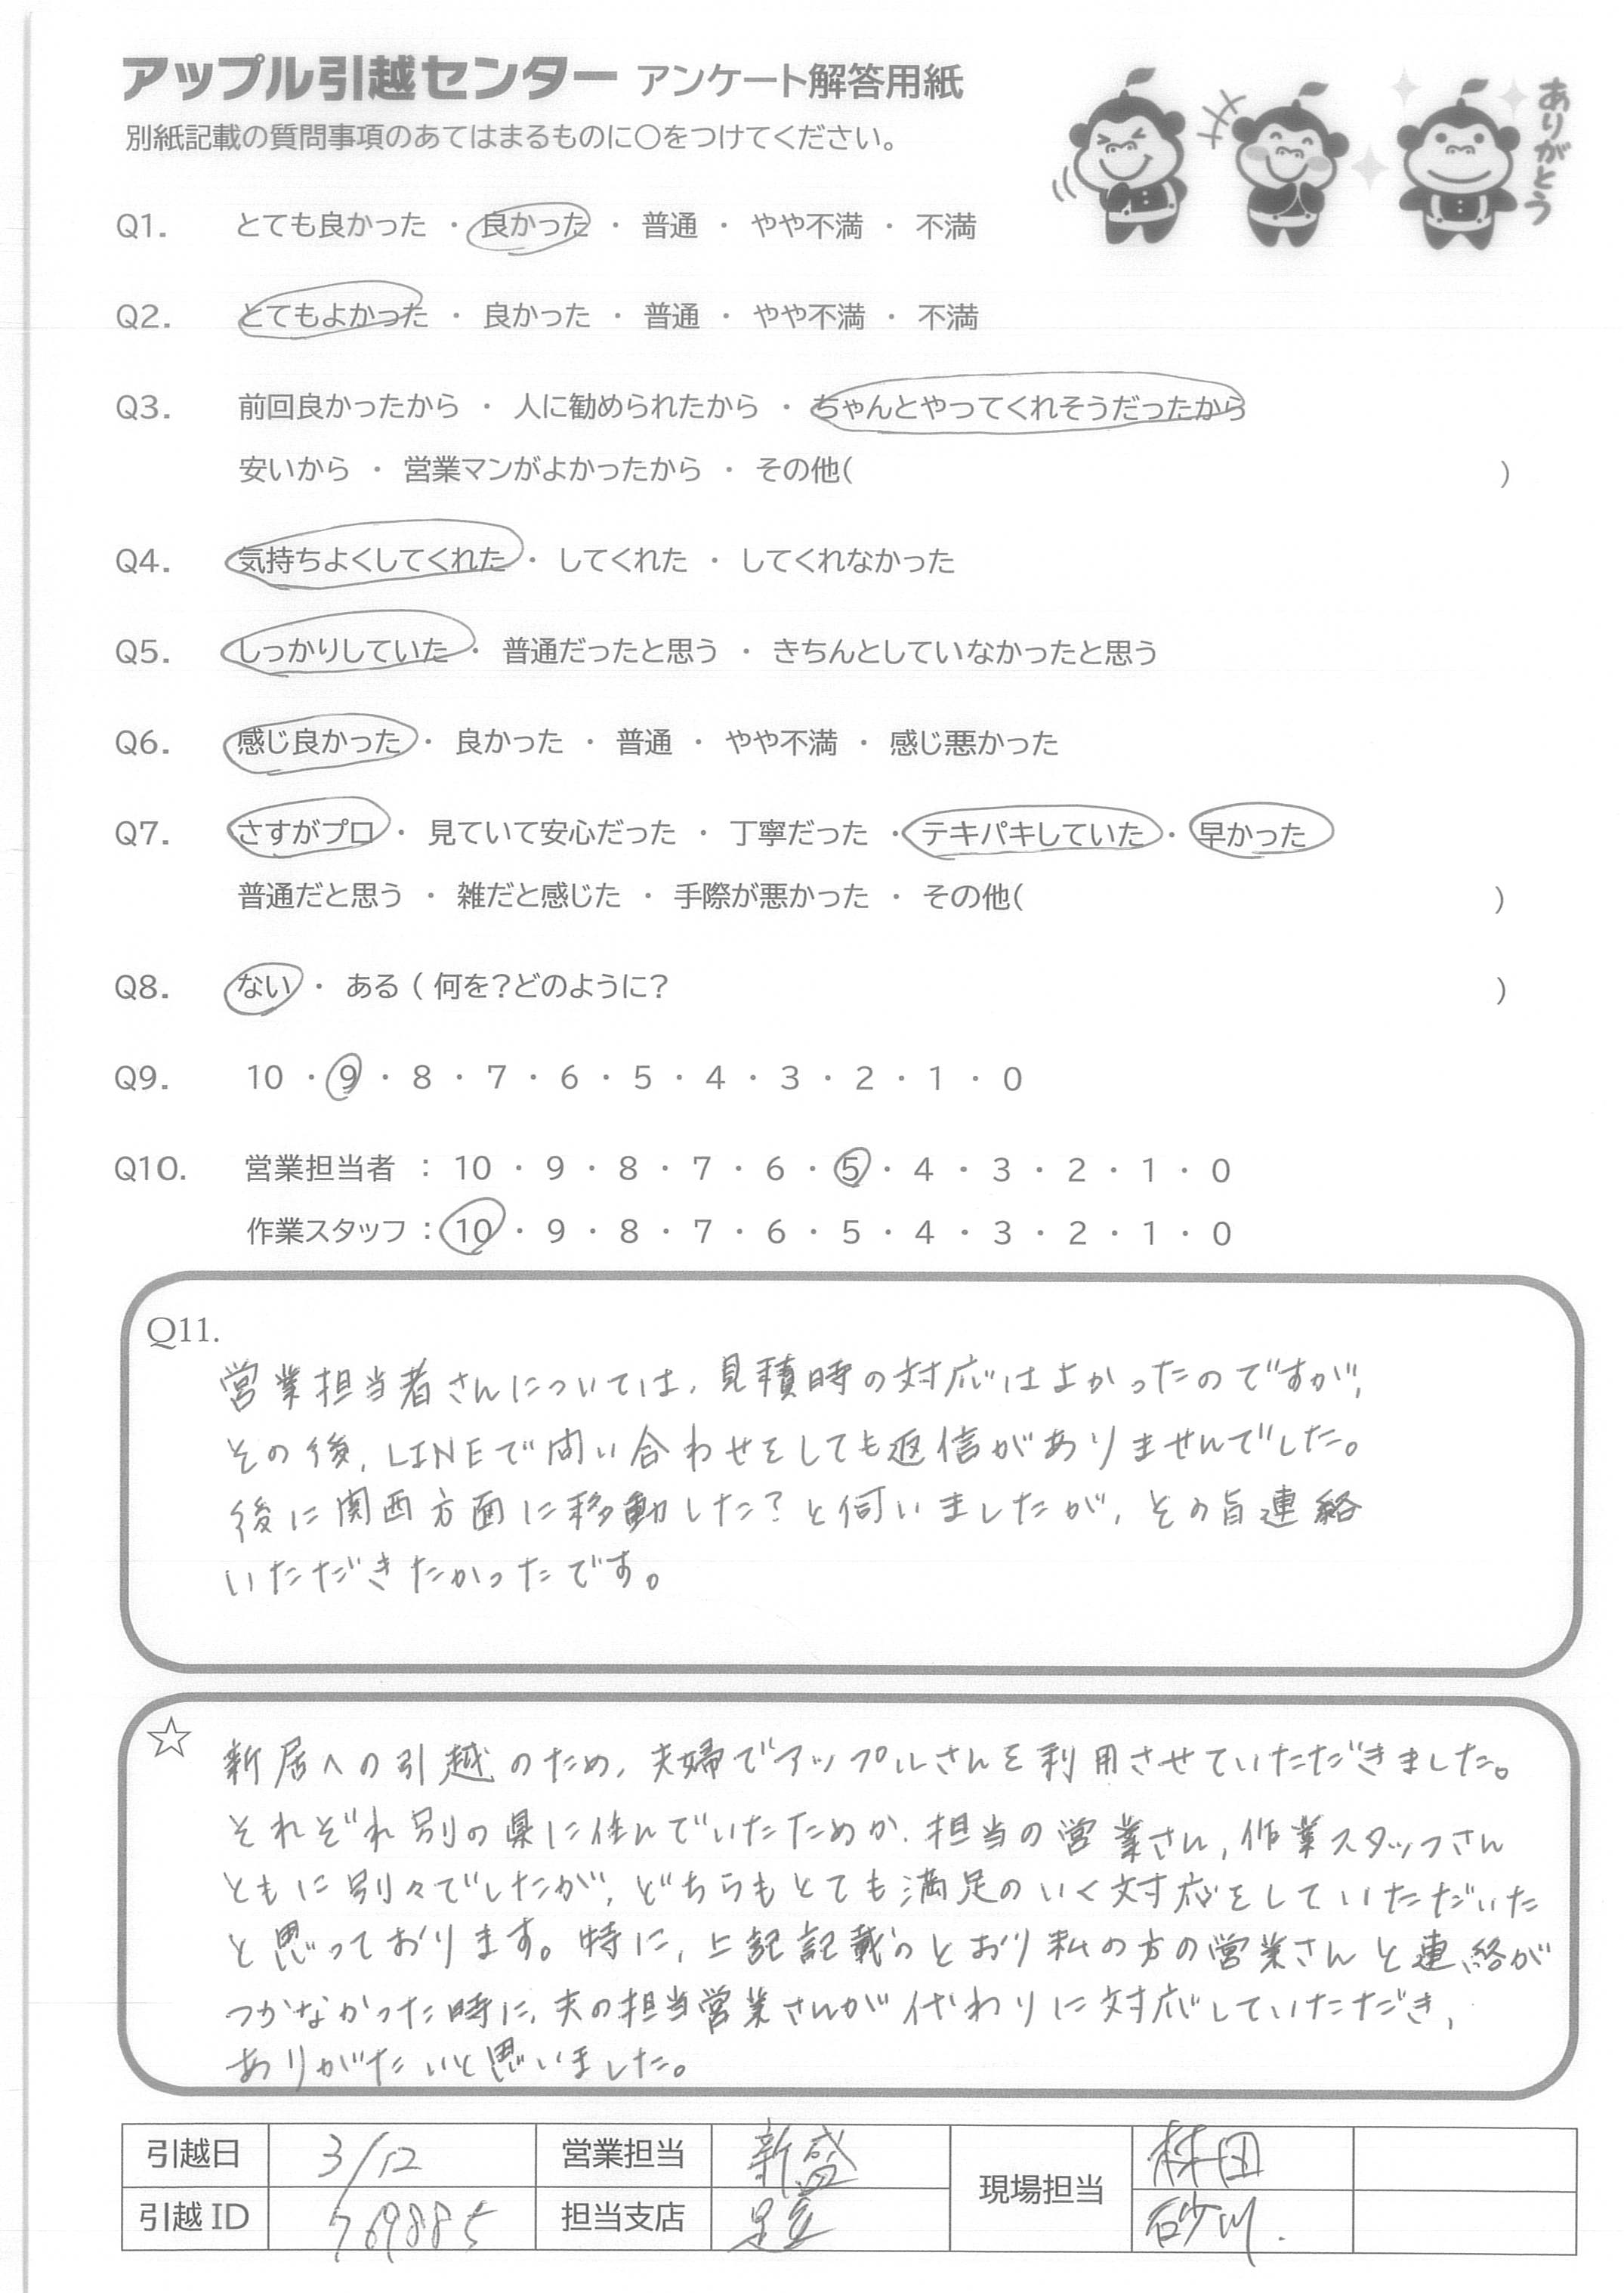 アップル引越センター アンケート解答用紙
別紙記載の質問事項のあてはまるものに〇をつけてください。
ありがとう
Q1. とても良かった ・ 良かった ・ 普通 ・ やや不満 ・ 不満
Q2. とてもよかった ・ 良かった ・ 普通 ・ やや不満 ・ 不満
Q3. 前回良かったから ・ 人に勧められたから ・ ちゃんとやってくれそうだったから
安いから ・ 営業マンがよかったから ・ その他( )
Q4. 気持ちよくしてくれた ・ してくれた ・ してくれなかった
Q5. しっかりしていた ・ 普通だったと思う ・ きちんとしていなかったと思う
Q6. 感じ良かった ・ 良かった ・ 普通 ・ やや不満 ・ 感じ悪かった
Q7. さすがプロ ・ 見ていて安心だった ・ 丁寧だった ・ テキパキしていた ・ 早かった
普通だと思う ・ 雑だと感じた ・ 手際が悪かった ・ その他( )
Q8. ない ・ ある ( 何を?どのように? )
Q9. 10 ・ 9 ・ 8 ・ 7 ・ 6 ・ 5 ・ 4 ・ 3 ・ 2 ・ 1 ・ 0
Q10. 営業担当者 : 10 ・ 9 ・ 8 ・ 7 ・ 6 ・ 5 ・ 4 ・ 3 ・ 2 ・ 1 ・ 0
作業スタッフ : 10 ・ 9 ・ 8 ・ 7 ・ 6 ・ 5 ・ 4 ・ 3 ・ 2 ・ 1 ・ 0
Q11.
営業担当者さんについては、見積時の対応はよかったのですが、
その後、LINEで問い合わせをしても返信がありませんでした。
後に関西方面に移動した?と伺いましたが、その旨連絡
いただきたかったです。
☆
新居への引越のため、夫婦でアップルさんを利用させていただきました。
それぞれ別の県に住んでいたためか、担当の営業さん、作業スタッフさん
ともに別々でしたが、どちらもとても満足のいく対応をしていただいた
と思っております。特に、上記記載のとおり私の方の営業さんと連絡が
つかなかった時に、夫の担当営業さんが代わりに対応していただき、
ありがたいと思いました。
引越日 3/12 営業担当 新盛 現場担当 林田
引越ID 769885 担当支店 足立 砂川.